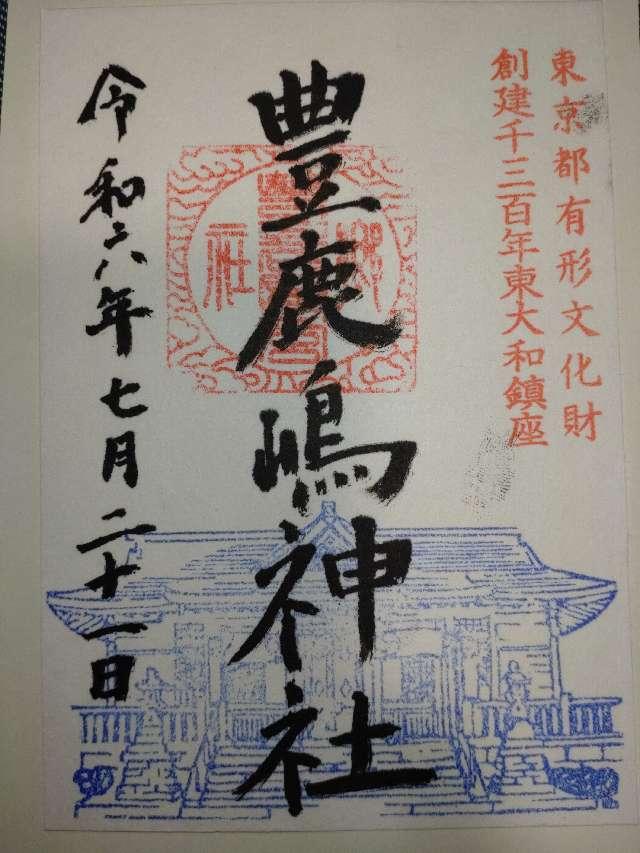 東京都有形文化財
創建千三百年東大和鎮座
豊鹿嶋神社
令和六年七月二十一日